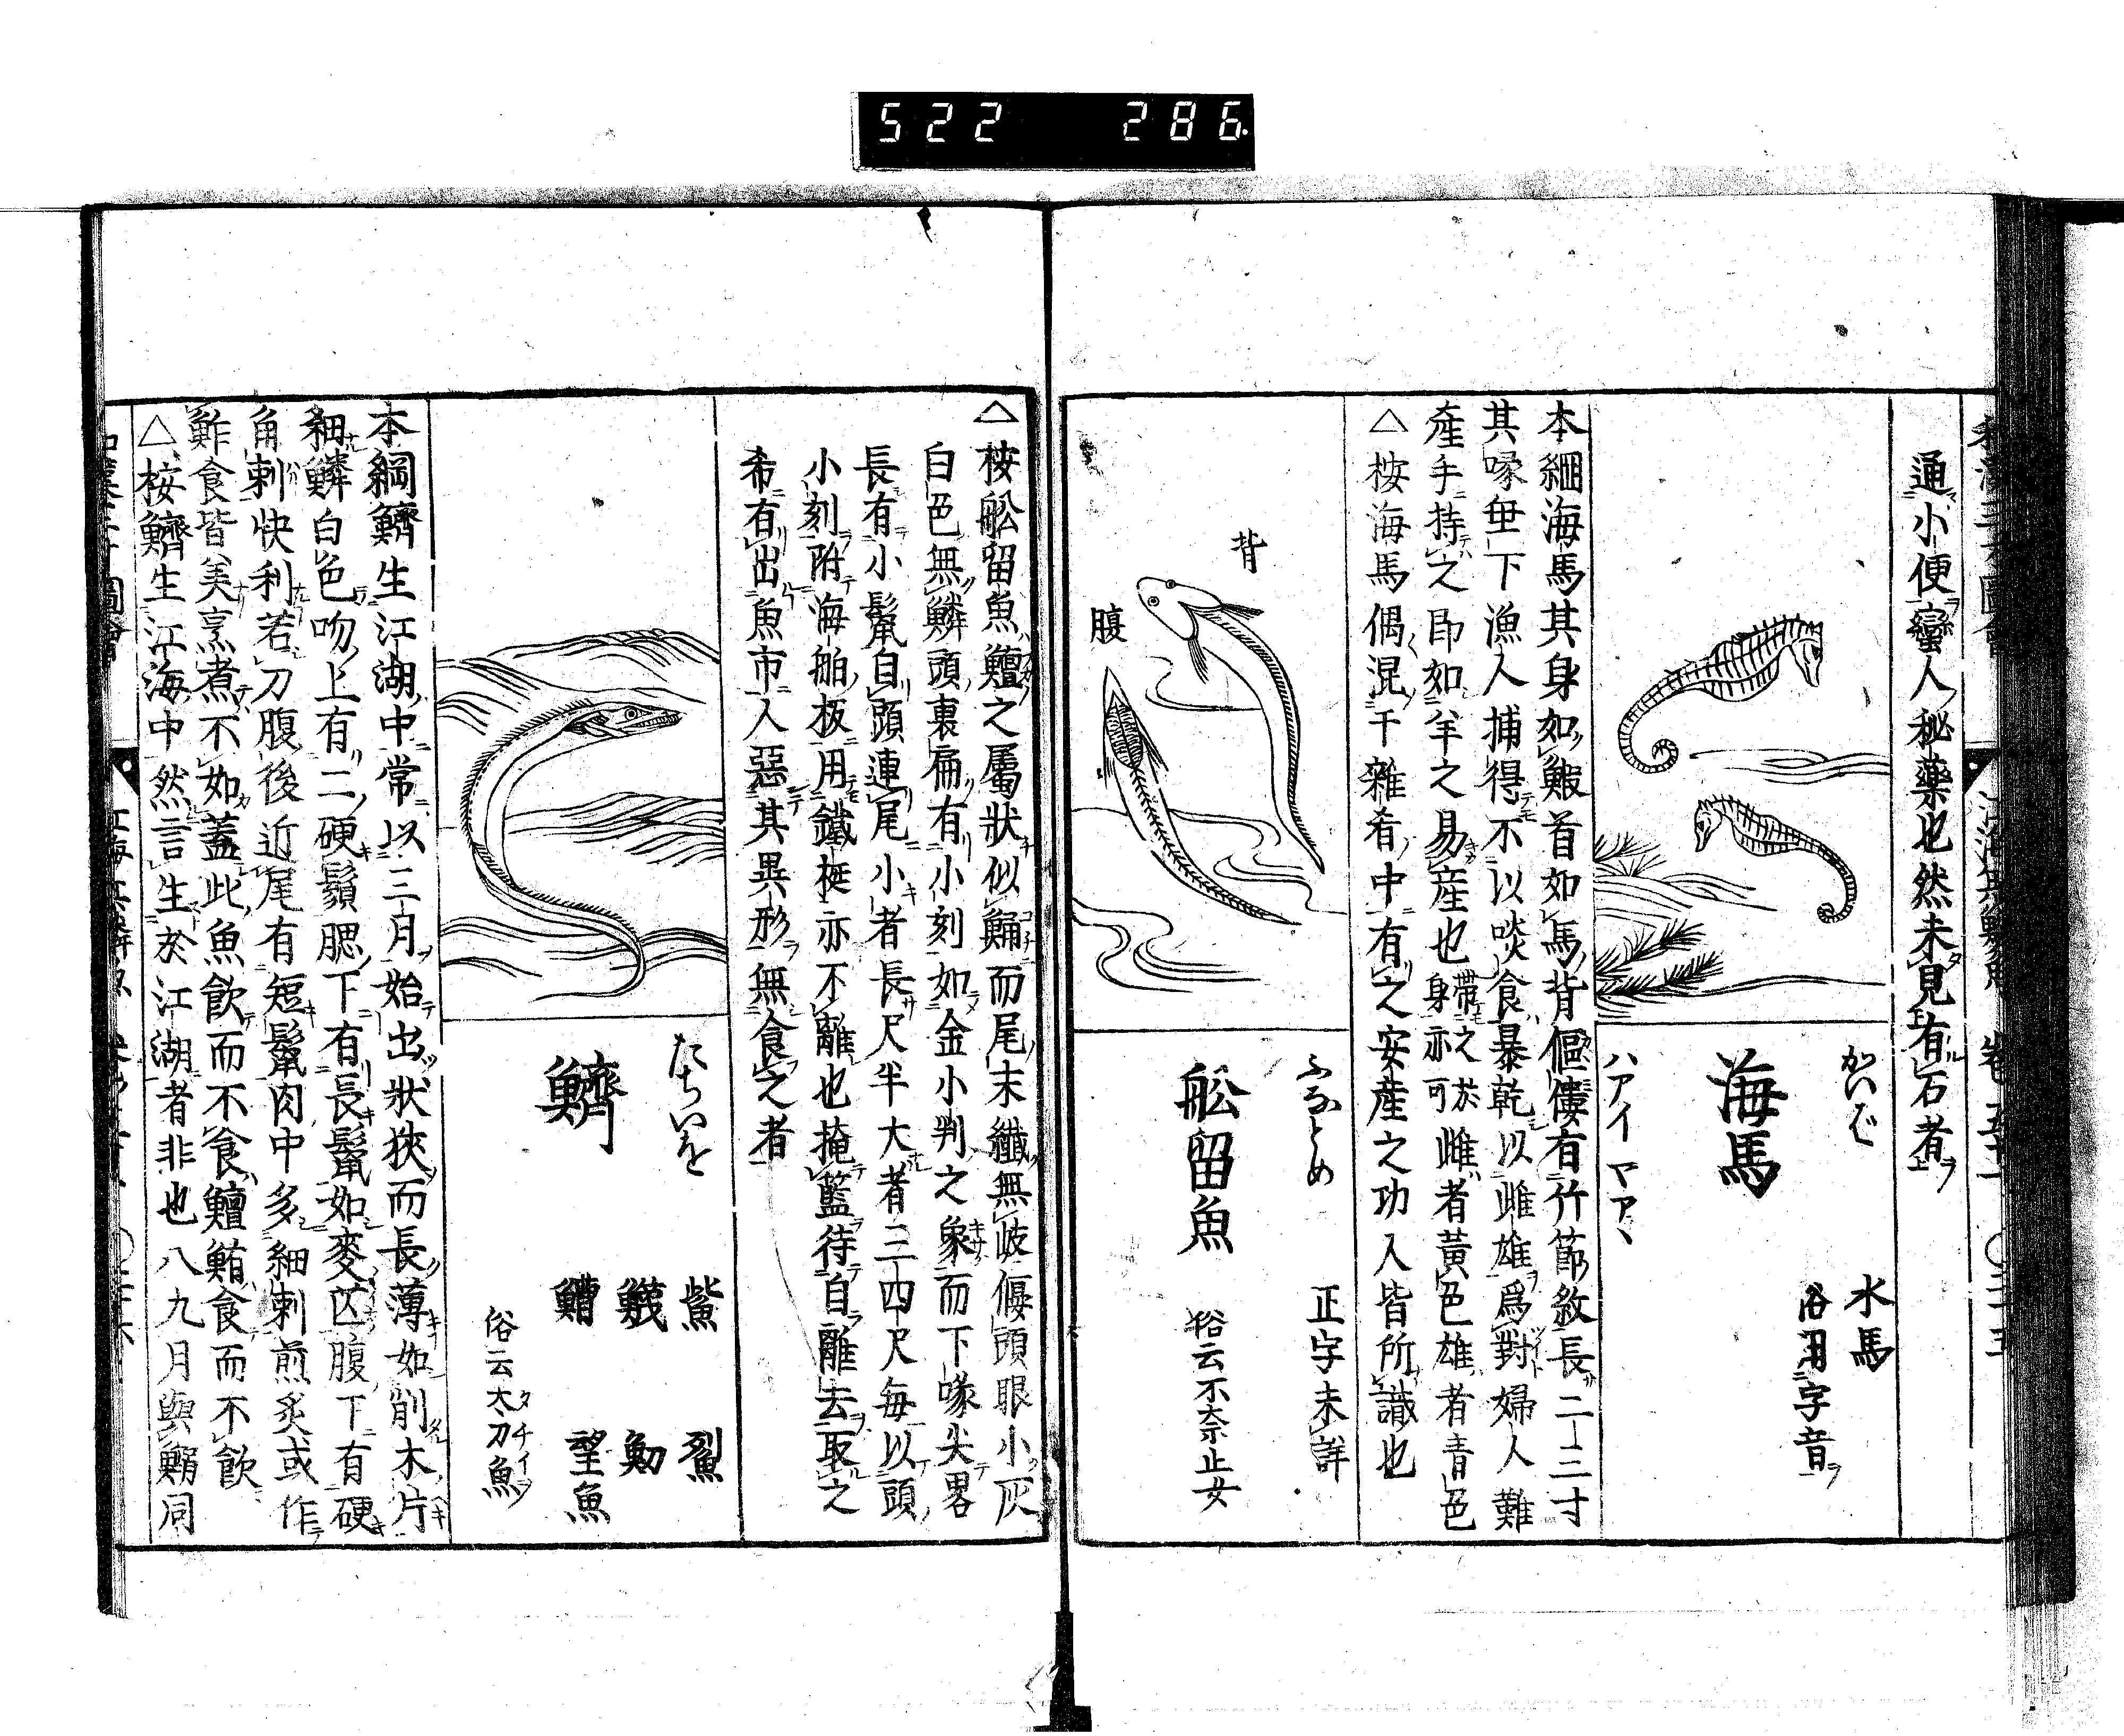 522 286
通小便蠻人秘藥也然未見有石者
かいば
海馬
ハアイマアヽ
水馬
俗用字音
本綱海馬其身如鰕首如馬背傴僂有竹節紋長二三寸
其喙垂下漁人捕得不以啖食暴乾以雌雄爲對婦人難
產手持之卽如羊之易產也帶之於身亦可雌者黃色雄者青色
△按海馬偶混干雜肴中有之安產之功人皆所識也
背
腹
ふなとめ
舩留魚
正字未詳
俗云不奈止女
△按舩留魚鱣之屬狀似鯒而尾末纖無岐偃頭眼小灰
白色無鱗頭裏扁有小刻如金小判之象而下喙尖畧
長有小鬣自頭連尾小者長尺半大者三四尺每以頭
小刻附海舶板用鐵梃亦不離也掩籃待自離去取之
希有出魚市人惡其異形無食之者
たちいを
鱭
鮆 鮤
鱴 魛
鰽 望魚
俗云太刀魚
本綱鱭生江湖中常以三月始出狀狹而長薄如削木片
細鱗白色吻上有二硬鬚腮下有長鬣如麥芒腹下有硬
角刺快利若刀腹後近尾有短鬣肉中多細刺煎炙或作
鮓食皆美烹煮不如蓋此魚飮而不食鱣鮪食而不飮
△按鱭生江海中然言生於江湖者非也八九月與鰯同